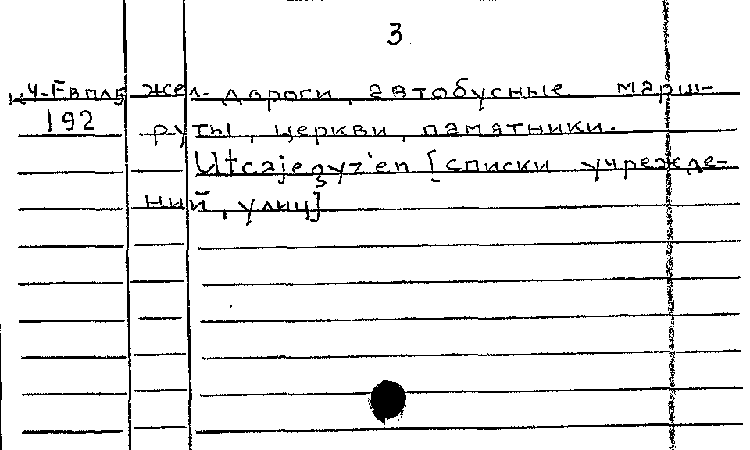 3
жел- дороги, автобусные марш-
192 руты, церкви, памятники.
Utcajegyz'en [списки учрежде-
ний, улиц]